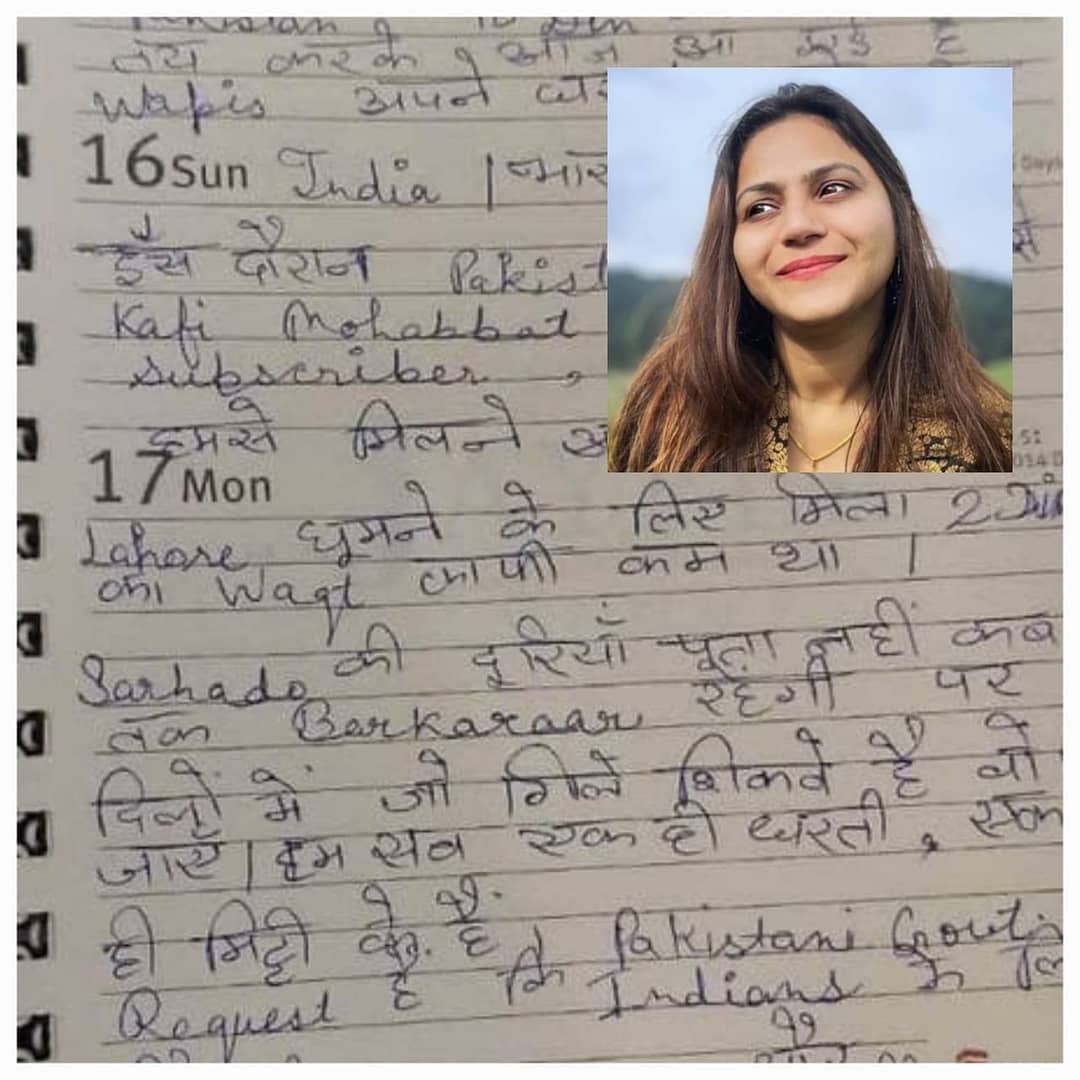 Pakistan से 10 Din
तय करके आज आ गए है
Wapis अपने
16 Sun India | भार
इस दौरान Pakist
Kafi Mohabbat
Subscriber ,
हमसे मिलने अ
17 Mon
Lahore घूमने के लिए मिला 2 दिन
का Waqt काफी कम था |
Sarhado की दूरियाँ पता नहीं कब
तक Barkaraar रहेगी पर
दिलों में जो गिले शिकवे है वो
जाए | हम सब एक ही धरती , एक
ही मिट्टी के है
Pakistani Govt. से
Request है कि Indians के लि